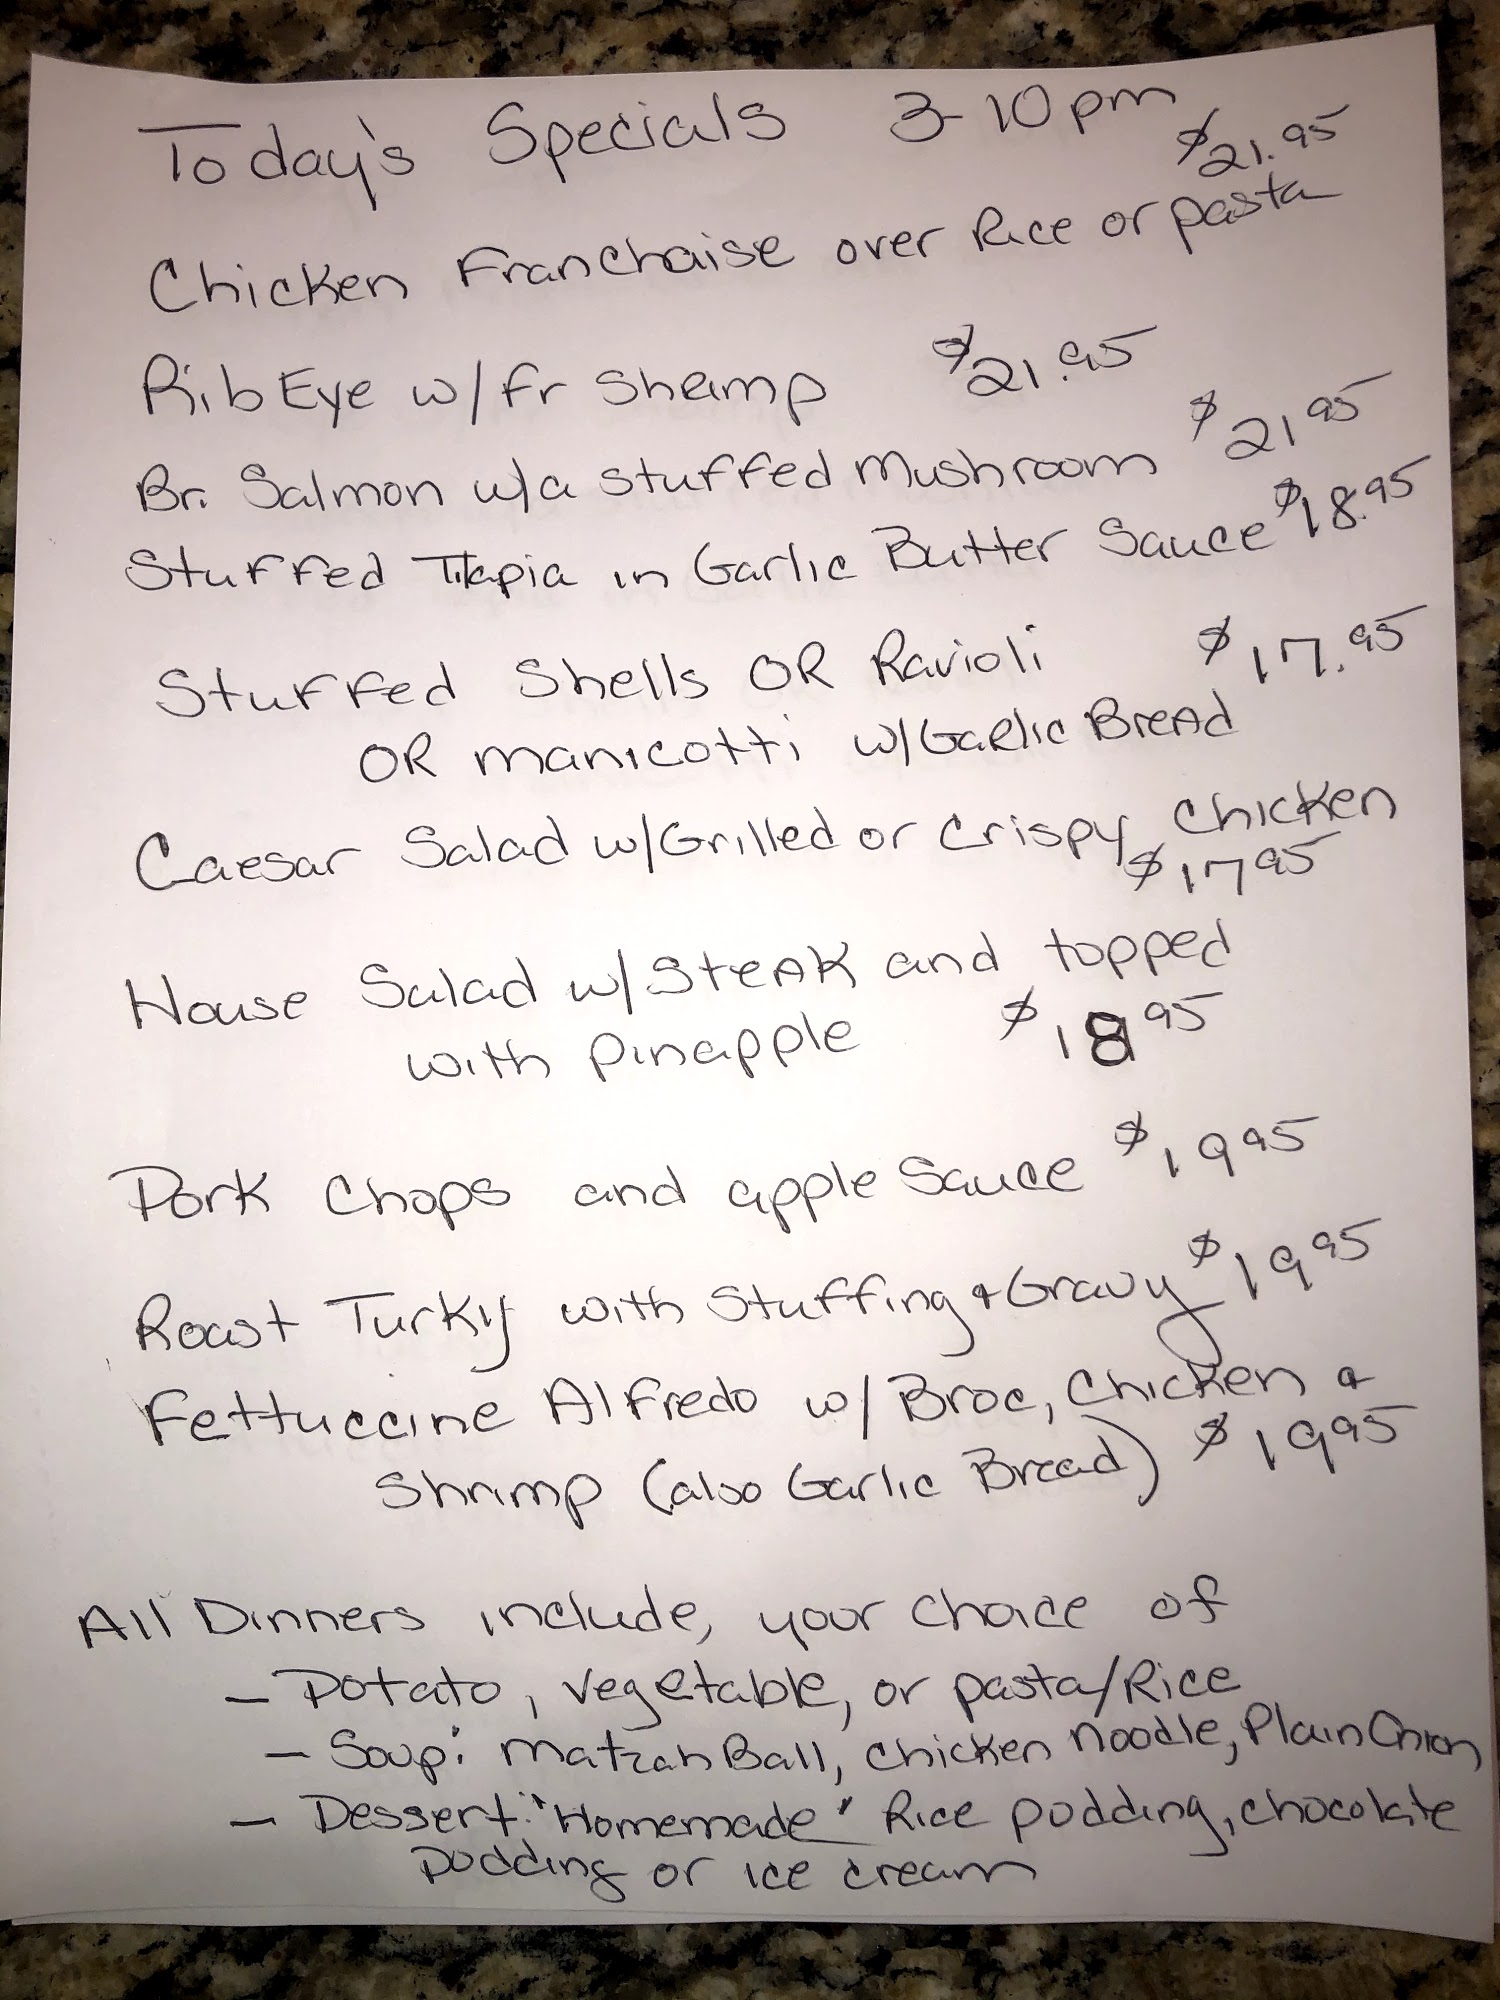 Today's Specials 3-10pm
$21.95
Chicken Franchaise over Rice or pasta
Rib Eye w/Fr Shrimp $21.95
Br. Salmon w/a stuffed Mushroom $21.95
Stuffed Tilapia in Garlic Butter Sauce $18.95
Stuffed Shells OR Ravioli $17.95
OR Manicotti w/Garlic Bread
Caesar Salad w/Grilled or Crispy Chicken
$17.95
House Salad w/Steak and topped
with Pineapple $18.95
Pork Chops and apple Sauce $19.95
Roast Turky with Stuffing + Gravy $19.95
Fettuccine Alfredo w/Broc, Chicken +
Shrimp (also Garlic Bread) $19.95
All Dinners include, your choice of
- Potato, vegetable, or pasta/Rice
- Soup: Matzah Ball, Chicken Noodle, Plain Onion
- Dessert: "Homemade" Rice pudding, chocolate
pudding or ice cream